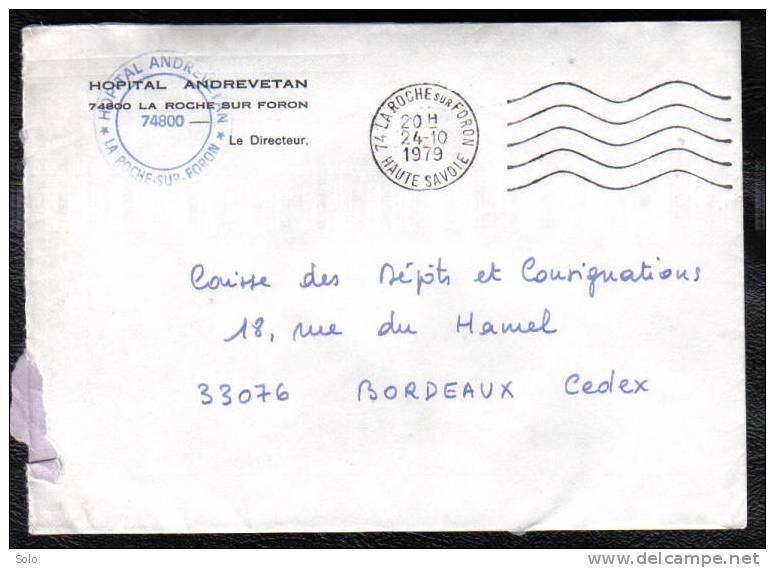 HOPITAL ANDREVETAN
74800 LA ROCHE SUR FORON
Le Directeur,
★ HOPITAL ANDREVETAN ★
74800
LA ROCHE-SUR-FORON
74 LA ROCHE SUR FORON
20 H
24-10
1979
HAUTE SAVOIE
Caisse des Dépôts et Consignations
18, rue du Hamel
33076 BORDEAUX Cedex
Solo
delcampe.net